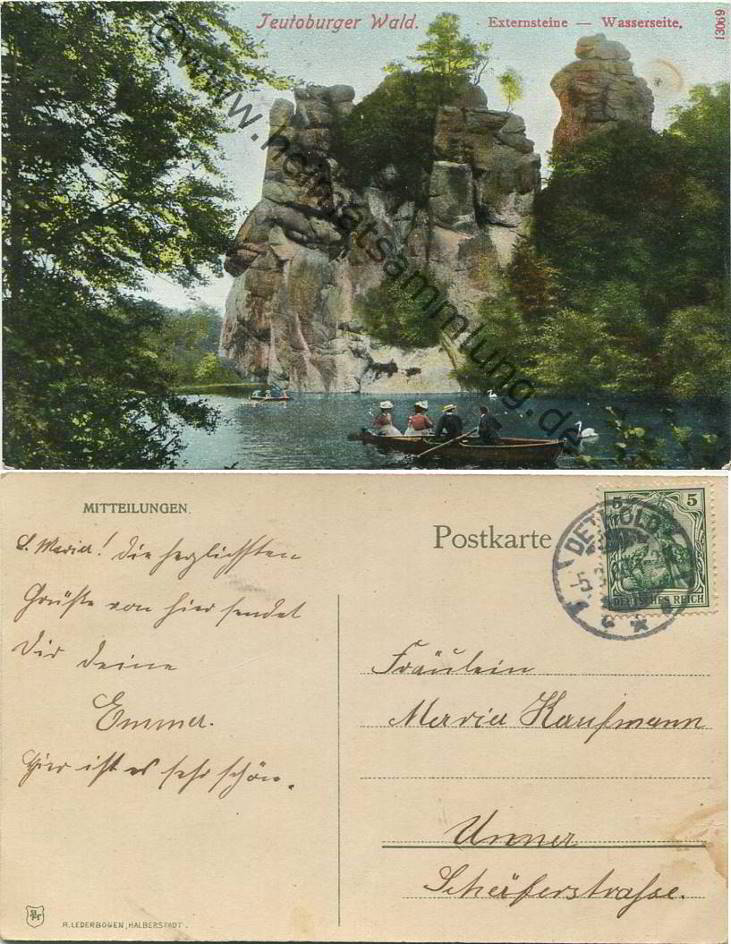 Teutoburger Wald.
Externsteine — Wasserseite.
13069
©www.heimatsammlung.de
MITTEILUNGEN.
Postkarte
5 5
DEUTSCHES REICH
DETMOLD
L. Maria! die herzlichsten
Grüße von hier sendet
Dir deine
Emma.
Hier ist es sehr schön.
Fräulein
Maria Kaufmann
Unna
Schäferstraße.
R. LEDERBOGEN, HALBERSTADT.